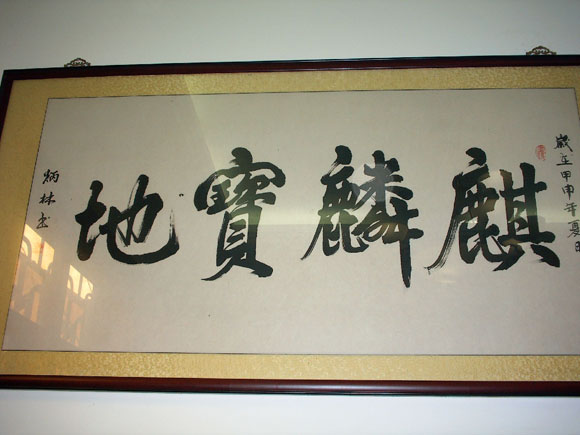 歲在甲申年夏
麒麟寶地
炳林书